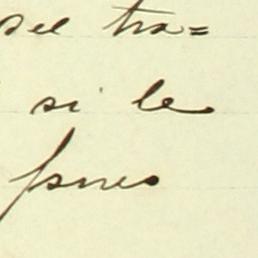 del tra=
si le
pues